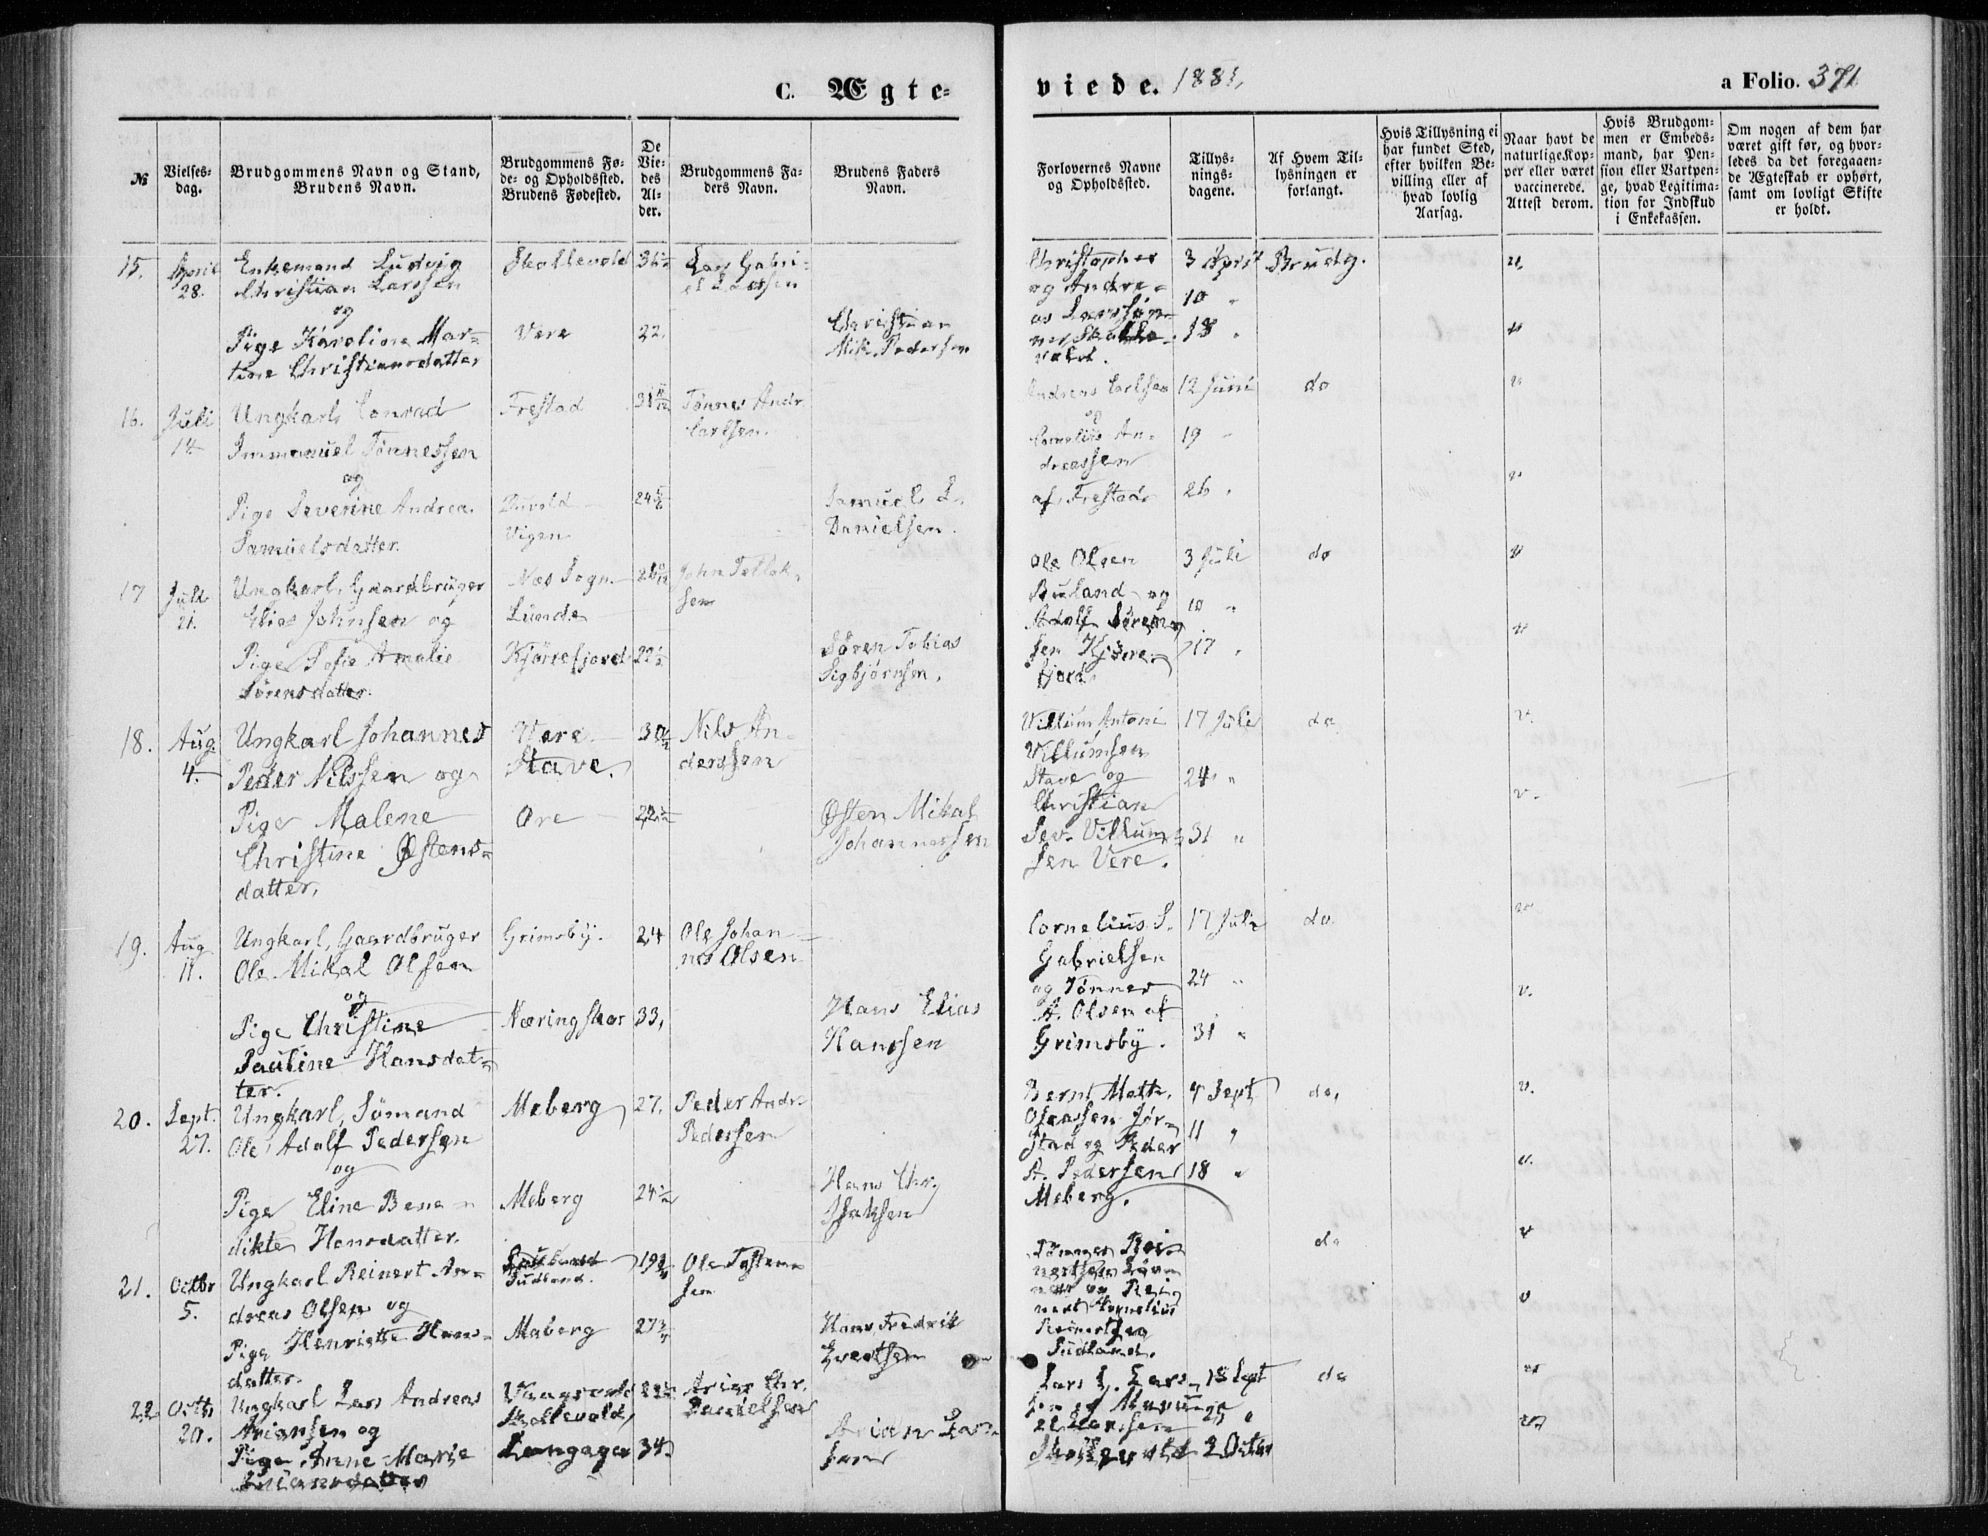 C. Ægte-
viede. 1881,
a Folio. 371
№
Vielses-
dag.
Brudgommens Navn og Stand,
Brudens Navn.
Brudgommens Fø-
de- og Opholdssted.
Brudens Fødested.
De
Vie-
des
Al-
der.
Brudgommens Fa-
ders Navn.
Brudens Faders
Navn.
Forlovernes Navne
og Opholdssted.
Tillys-
nings-
dagene.
Af Hvem Til-
lysningen er
forlangt.
Hvis Tillysning ei
har fundet Sted,
efter hvilken Be-
villing eller af
hvad lovlig
Aarsag.
Naar havt de
naturlige Kop-
per eller været
vaccinerede.
Attest derom.
Hvis Brudgom-
men er Embeds-
mand, har Pen-
sion eller Vartpen-
ge, hvad Legitima-
tion for Indskud
i Enkekassen.
Om nogen af dem har
været gift før, og hvor-
ledes da det foregaaen-
de Ægteskab er ophørt,
samt om lovligt Skifte
er holdt.
15.
April
28.
Enkemand Ludvig
Christian Larssen
og
Pige Karoline Mar-
tine Christiansdatter
Skollevold
Vere
22.
Lars Gabri-
el Larssen
Christian
Mik. Pedersen
Christopher
og Andre-
as Larssen-
ner Skolle-
vold.
3 April
10 "
18 "
Brudg.
16.
Juli
14
Ungkarl Conrad
Immanuel Tønnessen
og
Pige Severine Andrea
Samuelsdatter.
Frestad
Vigen
Tønnes Andr.
Carlsen.
Samuel L.
Danielsen.
Andreas Carlsen
og
Cornelius An-
dreassen
af Frestad
12 Juni
19 "
26 "
do
17
Juli
21.
Ungkarl, Gaardbruger
Elias Johnsen og
Pige Sofie Amalie
Sørensdatter.
Næs Sogn
Lunde
Kjørrefjord
John Tollak-
sen
Søren Tobias
Sigbjørnsen.
Ole Olsen
Buland og
Adolf Søren-
sen Kjørre-
fjord.
3 Juli
10 "
17 "
do
18.
Aug
4.
Ungkarl Johannes
Peder Nilssen og
Pige Malene
Christine Østens-
datter.
Vere
Stave.
Ore
Nils An-
derssen
Østen Mikal
Johannessen
Villum Antoni
Villumsen
Stave og
Christian
Sev. Villum-
sen Vere.
17 Juli
24 "
31 "
do
v.
v.
19.
Aug
11.
Ungkarl, Gaardbruger
Ole Mikal Olsen
og
Pige Christine
Pauline Hansdat-
ter.
Grimsby.
Næringskar
24
33,
Ole Johan-
nes Olsen
Hans Elias
Hanssen
Cornelius S.
Gabrielsen
og Tønnes
A. Olsen af
Grimsby.
17 Juli
24 "
31 "
do
v.
20.
Sept.
27.
Ungkarl, Sømand
Ole Adolf Pedersen
og
Pige Eline Bene-
dikte Hansdatter.
Meberg
Meberg
27.
Peder Andr.
Pedersen
Hans Chr.
Isaksen
Bernt Math.
Olaussen Jør-
stad og Peder
A. Pedersen
Meberg.
4 Sept
11 "
18 "
do,
v.
v.
21.
Octbr
5.
Ungkarl Reinert An-
dreas Olsen og
Pige Henriette Hans-
datter.
Judland.
Maberg
Ole Tosten-
sen
Hans Fredrik
Evertsen
Tønnes Rei-
nertsen
og Rei-
nert Kornelius
Reinertsen
Judland.
do
v
v
22
Octb
20.
Ungkarl Lars Andreas
Ariansen og
Pige Anne Marie
Ariansdatter
Skollevold,
Langager
34
Arian Chr.
Danielsen
Arian Lar-
sen
Lars G. Lars-
sen og
Larsen
Skollevold
18 Sept
25 "
2 Octbr
do